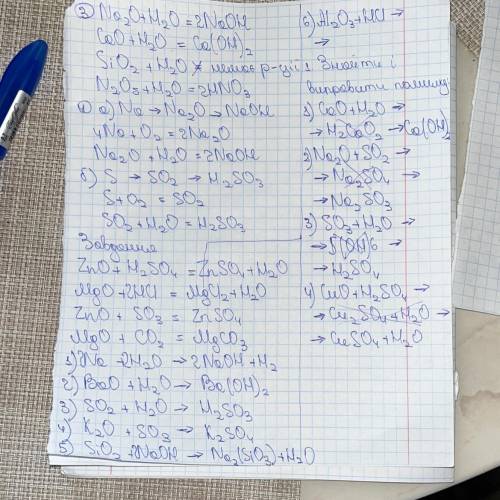 ② Na₂O+H₂O=2NaOH
CaO+H₂O = Ca(OH)₂
SiO₂+H₂O ≠ немає р-ції
N₂O₅+H₂O=2HNO₃
а) Na→Na₂O→NaOH
4Na+O₂=2Na₂O
Na₂O+H₂O=2NaOH
б) S→SO₂→H₂SO₃
S+O₂=SO₂
SO₂+H₂O=H₂SO₃
Завдання
ZnO+H₂SO₄=ZnSO₄+H₂O
MgO+2HCl=MgCl₂+H₂O
ZnO+SO₃=ZnSO₄
MgO+CO₂=MgCO₃
1) 2Na 2H₂O→2NaOH+H₂
2) BaO+H₂O→Ba(OH)₂
3) SO₂+H₂O→H₂SO₃
4) K₂O+SO₃→K₂SO₄
5) SiO₂ 2NaOH→Na₂(SiO₃)+H₂O
6) Al₂O₃+HCl→
→
1. Знайти і
виправити помилку
1) CaO+H₂O→
→H₂CaO₂→Ca(OH)₂
2) Na₂O+SO₂→
→Na₂SO₄→
→Na₂SO₃
3) SO₃+H₂O→
→S(OH)6→
→H₂SO₄
4) CuO+H₂SO₄→
→Cu₂SO₄+H₂O→
→CuSO₄+H₂O